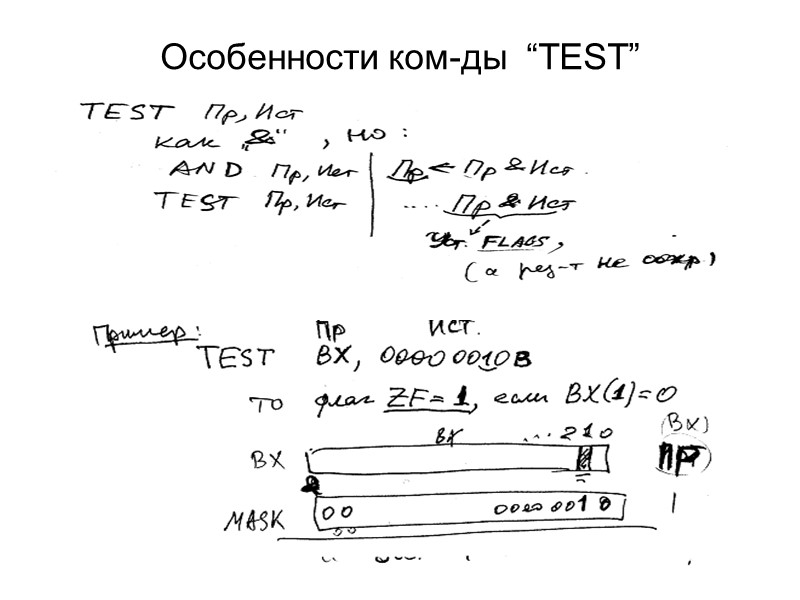 Особенности ком-ды “TEST”
TEST Пр, Ист
как „&“ , но :
AND Пр, Ист | Пр ← Пр & Ист.
TEST Пр, Ист | .... Пр & Ист
Уст. FLAGS,
(а рез-т не сохр)
Пример: Пр ИСТ.
TEST BX, 00000010B
то флаг ZF=1, если BX(1)=0
BX ...210 (BX)
BX ПР
&
MASK 00 00000010 1
00